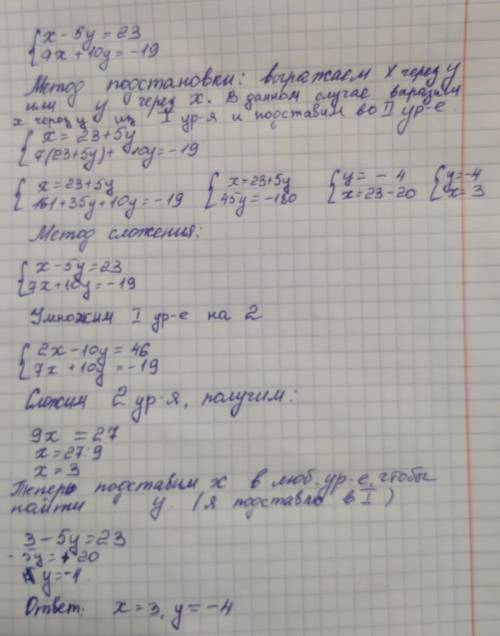 { x - 5y = 23
{ 7x + 10y = -19
Метод подстановки: выражаем x через y
или y через x. В данном случае выразим
x через y из I ур-я и подставим во II ур-е.
{ x = 23 + 5y
{ 7(23+5y) + 10y = -19
{ x = 23+5y { x = 23+5y { y = -4 { y = -4
{ 161+35y+10y = -19 { 45y = -180 { x = 23-20 { x = 3
Метод сложения:
{ x - 5y = 23
{ 7x + 10y = -19
Умножим I ур-е на 2
{ 2x - 10y = 46
{ 7x + 10y = -19
Сложим 2 ур-я, получим:
9x = 27
x = 27:9
x = 3
Теперь подставим x в люб. ур-е, чтобы
найти y (я подставлю в I)
3 - 5y = 23
-5y = 20
y = -4
Ответ: x = 3, y = -4